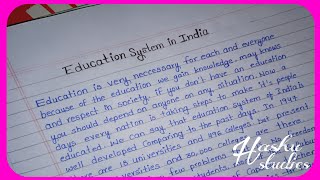 Education System in India
Education is very neccessary for each and everyone
because of the education we gain knowledge, may knows
and respect in society. If you don't have an education
you should depend on anyone on any situation. Now a
days every nation is taking steps to make it's people
educated. We can say that education system of India's
well developed comparing to the past days. In 1947
there are 18 universities and 898 colleges but present
universities and 30,000 colleges there.
few problems
students of
Hashu
studies